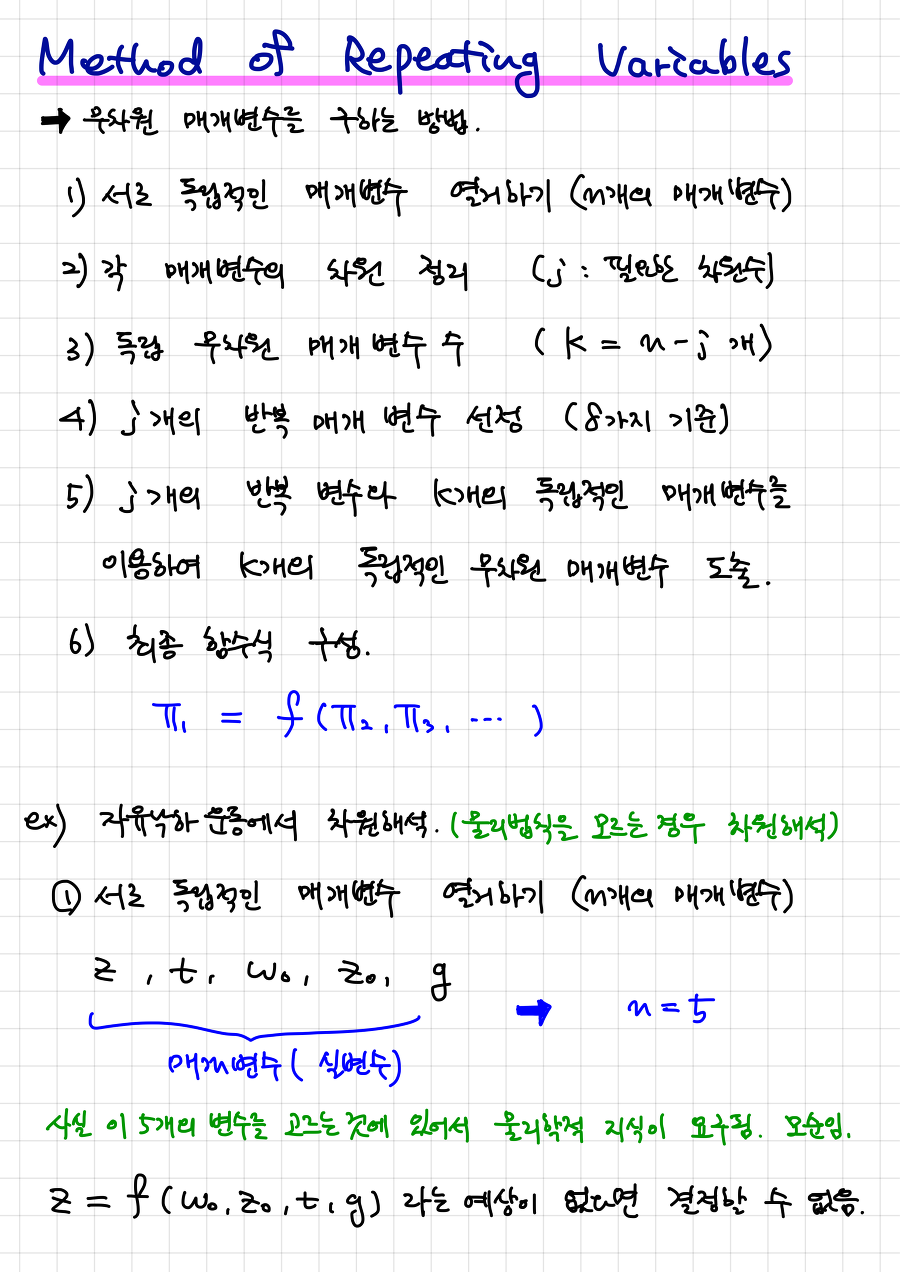 Method of Repeating Variables
→ 무차원 매개변수를 구하는 방법.
1) 서로 독립적인 매개변수 열거하기 (n개의 매개변수)
2) 각 매개변수의 차원 정리 (j : 필요한 차원수)
3) 독립 무차원 매개변수 수 (k = n-j 개)
4) j개의 반복 매개 변수 선정 (8가지 기준)
5) j개의 반복 변수와 k개의 독립적인 매개변수를
이용하여 k개의 독립적인 무차원 매개변수 도출.
6) 최종 함수식 구성.
π₁ = f(π₂, π₃, ⋯ )
ex) 자유낙하 운동에서 차원해석. (물리법칙을 모르는 경우 차원해석)
① 서로 독립적인 매개변수 열거하기 (n개의 매개변수)
z , t, w₀, z₀, g → n = 5
매개변수 ( 실변수)
사실 이 5개의 변수를 고르는 것에 있어서 물리학적 지식이 요구됨. 모순임.
z = f (w₀, z₀, t, g) 라는 예상이 없다면 결정할 수 없음.